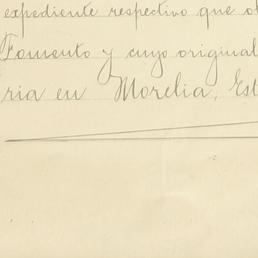 expediente respectivo que ob
Fomento y cuyo original
ria en Morelia, Est